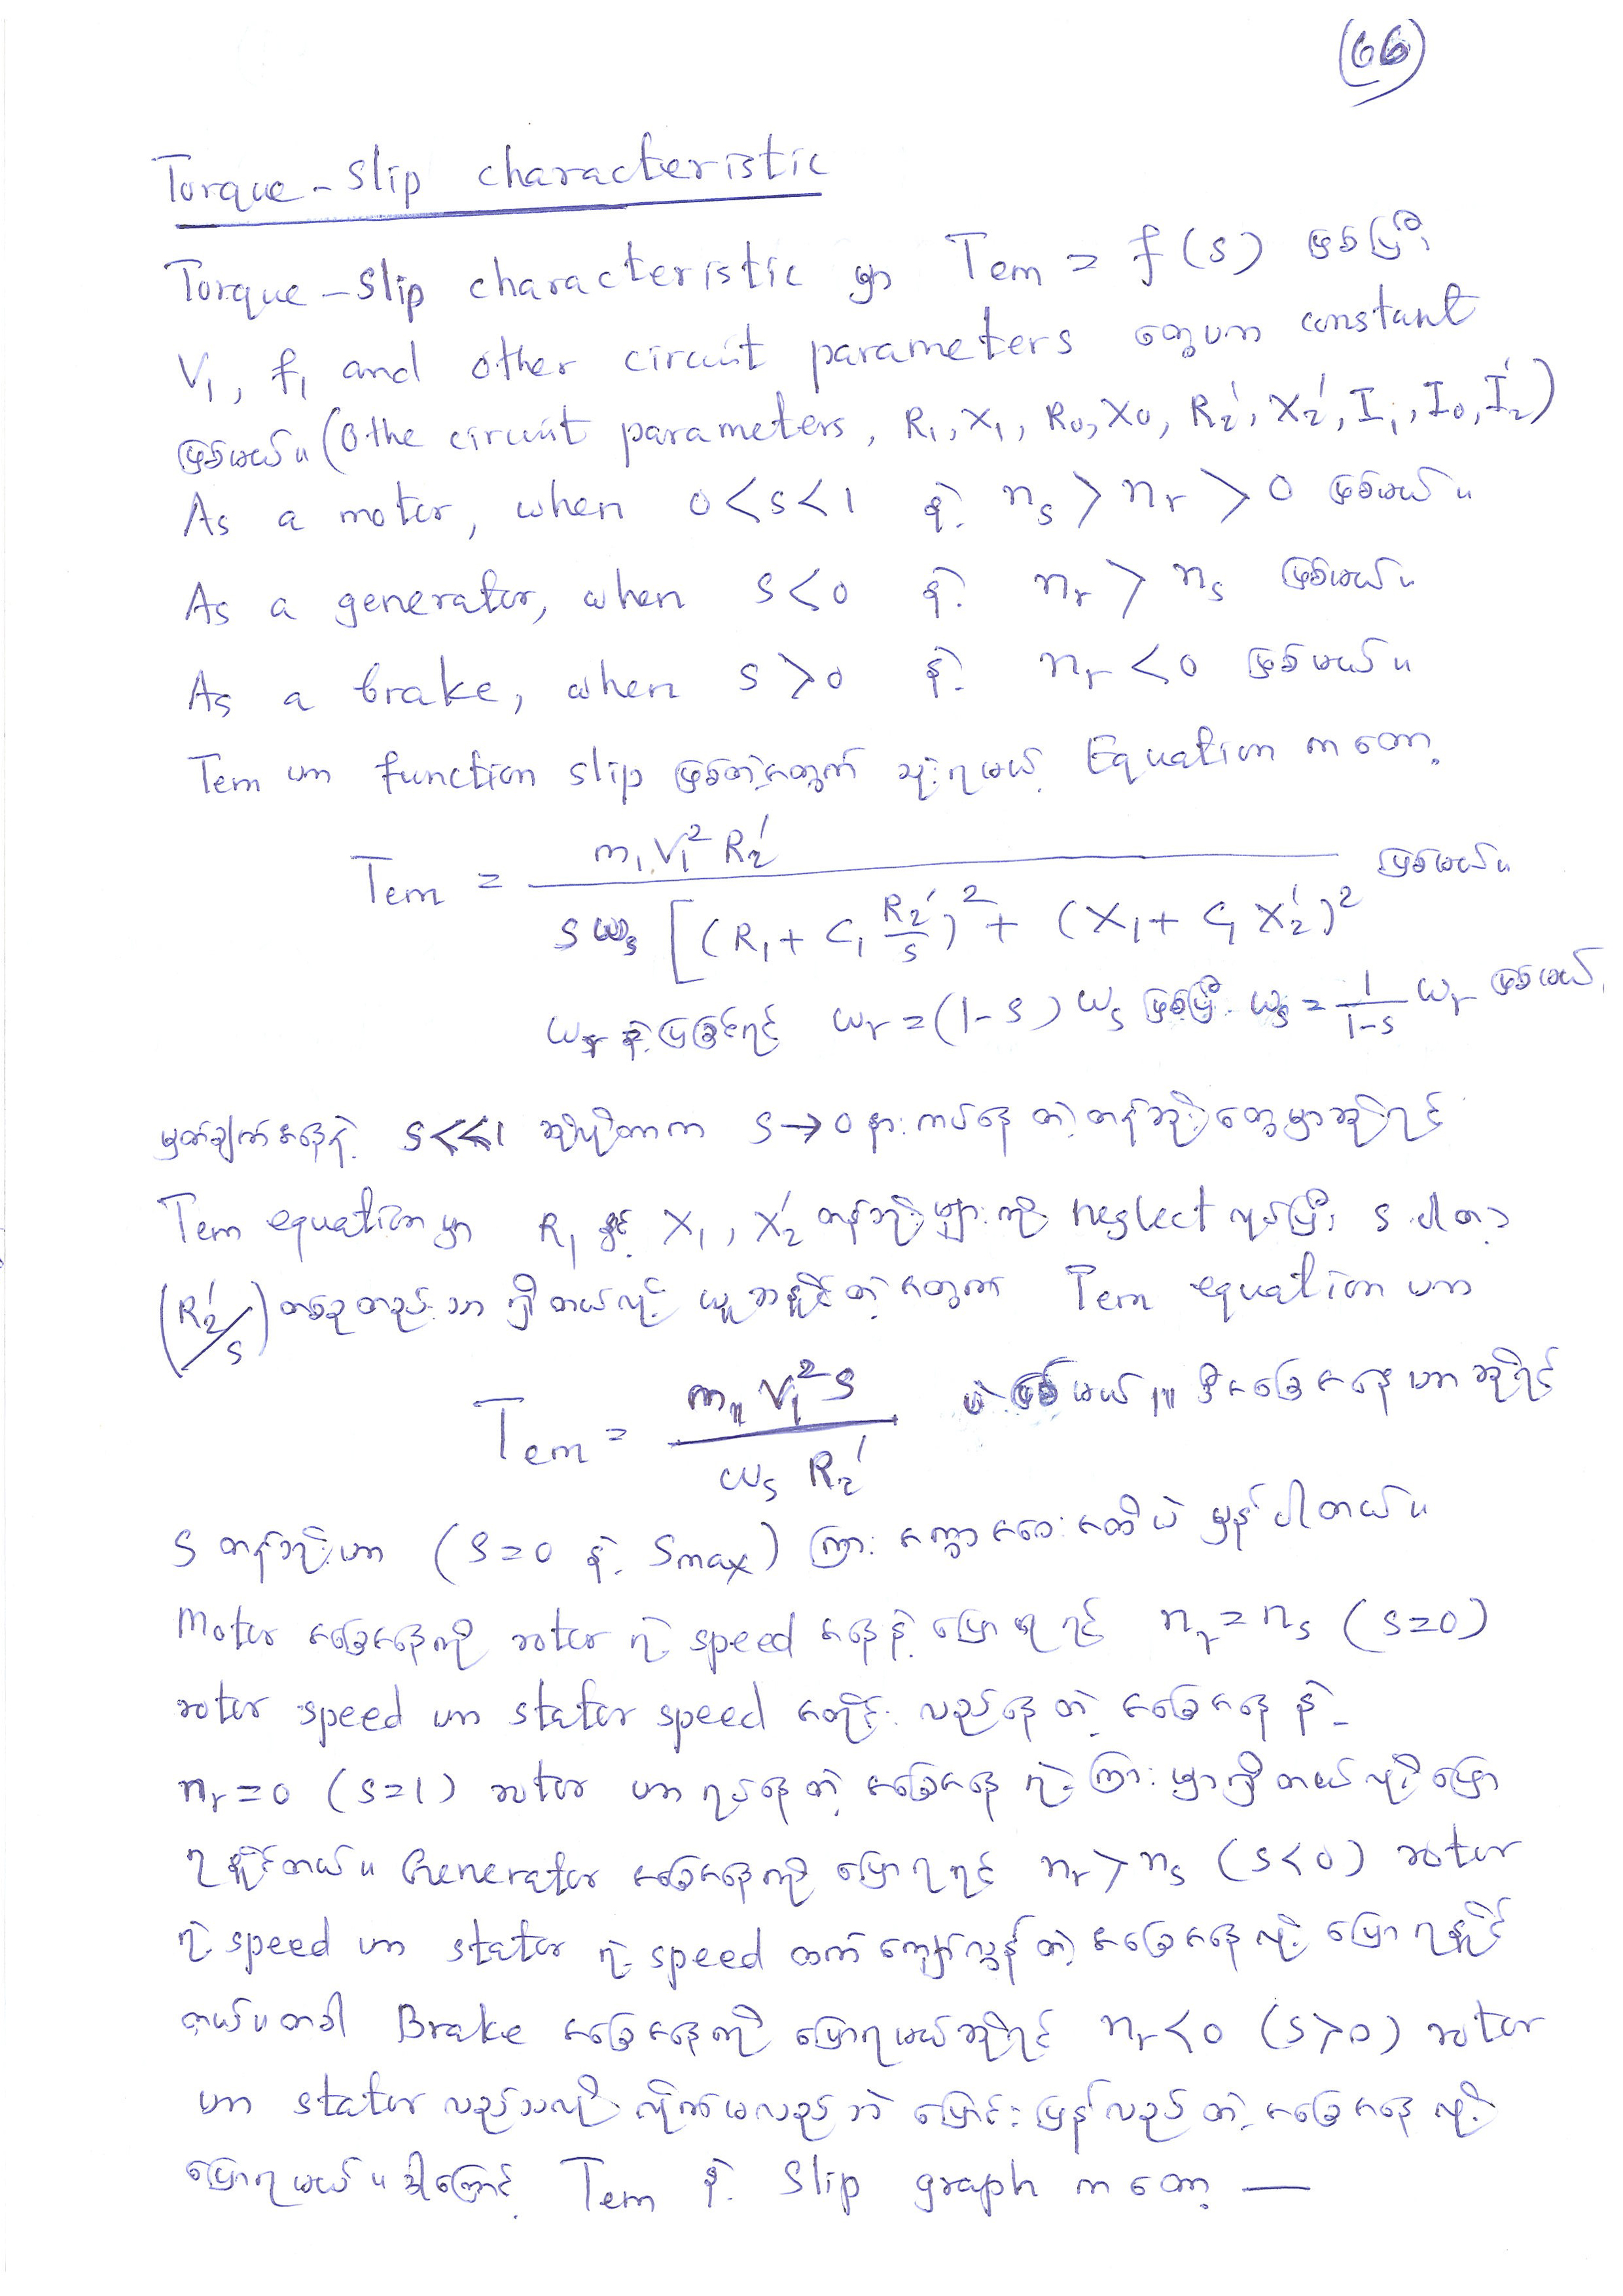 (66)
Torque-Slip characteristic
Torque-Slip characteristic မှာ Tem = f(s) ဖြစ်ပြီး
V₁, f₁ and other circuit parameters တွေဟာ constant
ဖြစ်မယ်။ (Othe circuit parameters, R₁, X₁, R₀, X₀, R₂', X₂', I₁, I₀, I₂')
As a motor, when 0<s<1 နဲ့ nₛ > nᵣ > 0 ဖြစ်မယ်။
As a generator, when s<0 နဲ့ nᵣ > nₛ ဖြစ်မယ်။
As a brake, when s>0 နဲ့ nᵣ < 0 ဖြစ်မယ်။
Tem ဟာ function slip ဖြစ်တဲ့အတွက် သုံးရမယ့် Equation ကတော့
Tem = m₁V₁²R₂' / sωₛ[(R₁ + C₁ R₂'/s)² + (X₁ + C₁X₂')² ဖြစ်မယ်။
ωᵣ နဲ့ပြခြင်ရင် ωᵣ = (1-s)ωₛ ဖြစ်ပြီး ωₛ = 1/(1-s) ωᵣ ဖြစ်မယ်
မှတ်ချက်အနေနဲ့ s<<1 ဆိုလိုတာက s→0 နားကပ်နေတဲ့ တန်ဘိုးတွေမှာဆိုရင်
Tem equation မှာ R₁ နှင့် X₁, X₂' တန်ဘိုးများကို neglect လုပ်ပြီး s ပါတဲ့
(R₂'/s) တစ်ခုတည်းသာ ရှိတယ်လို့ ယူဆနိုင်တဲ့အတွက် Tem equation ဟာ
Tem = m₁V₁²s / ωₛR₂' ဖြစ်မယ်။ ဒီအခြေအနေဟာ ဆိုရင်
s တန်ဘိုးဟာ (s=0 နဲ့ smax) ကြား အကွာအဝေးအထိပဲ မှန်ပါတယ်။
Motor အခြေအနေကို rotor ရဲ့ speed အနေနဲ့ ပြောရရင် nᵣ=nₛ (s=0)
rotor speed ဟာ stator speed အတိုင်း လည်နေတဲ့ အခြေအနေ နဲ့
nᵣ=0 (s=1) rotor ဟာ ရပ်နေတဲ့ အခြေအနေ ရဲ့ကြားမှာရှိတယ်လို့ ပြော
ရနိုင်တယ်။ Generator အခြေအနေကို ပြောရရင် nᵣ>nₛ (s<0) rotor
ရဲ့ speed ဟာ stator ရဲ့ speed ထက် ကျော်လွန်တဲ့ အခြေအနေလို့ ပြောရနိုင်
တယ်။ တခါ Brake အခြေအနေကို ပြောရမယ်ဆိုရင် nᵣ<0 (s>0) rotor
ဟာ stator လည်သလို လိုက်မလည်ဘဲ ပြောင်းပြန်လည်တဲ့ အခြေအနေလို့
ပြောရမယ်။ ဒါကြောင့် Tem နဲ့ Slip graph ကတော့ —